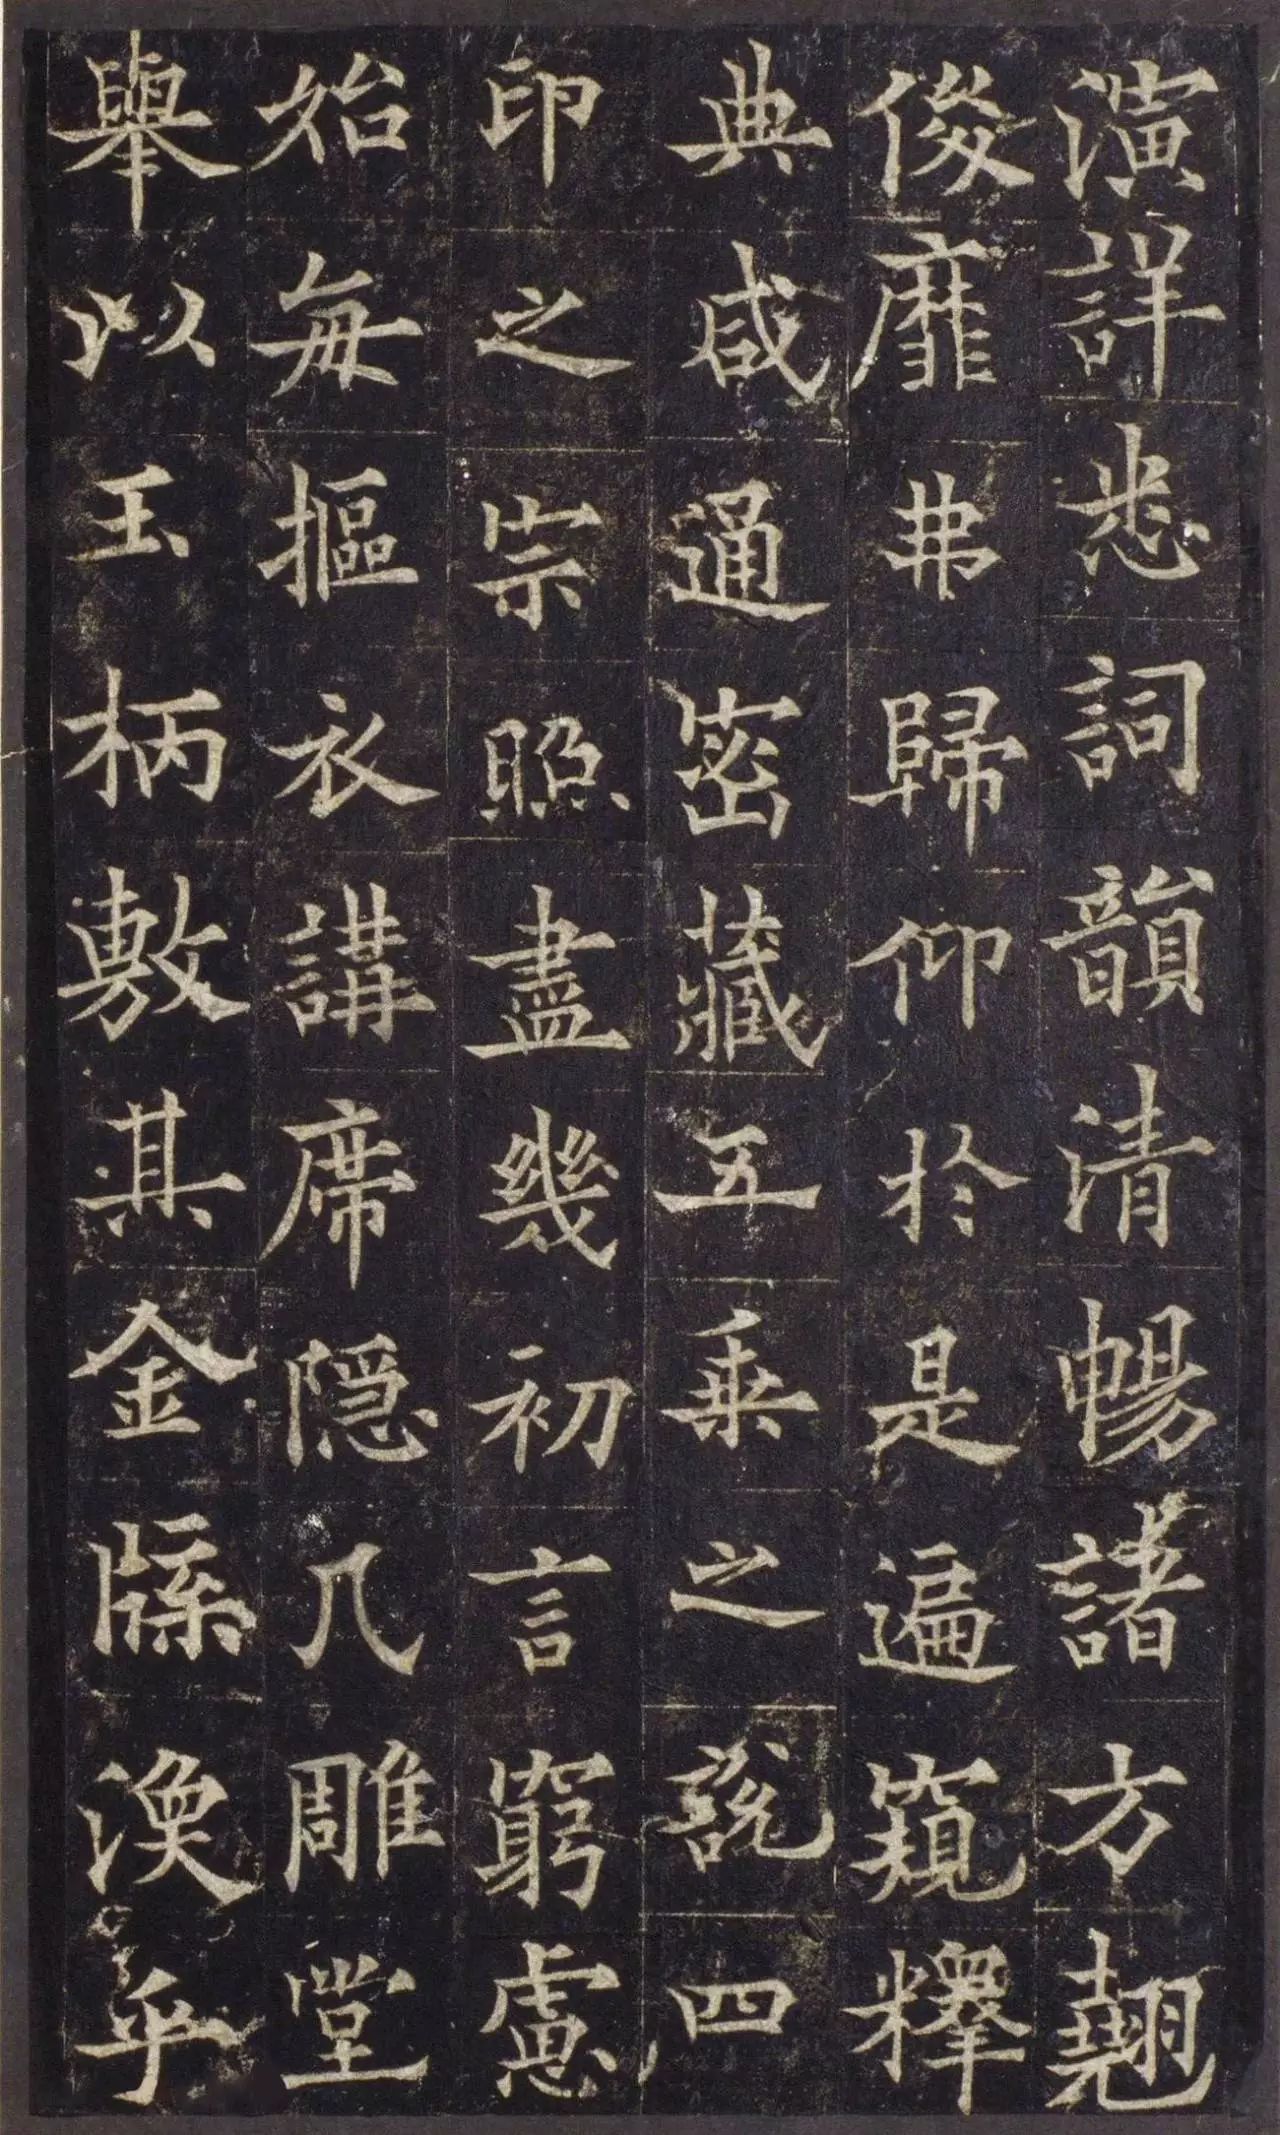 演詳悉詞韻清暢諸方翹
俊靡弗歸仰於是遍窺釋
典咸通密藏五乘之說四
印之宗照盡幾初言窮慮
始每摳衣講席隠几雕堂
舉以玉柄敷其金牒渙乎